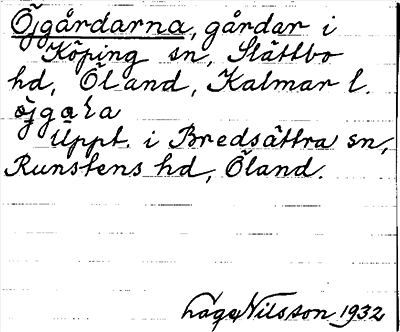 Öjgårdarna, gårdar i
Köping sn, Slättbo
hd, Öland, Kalmar l.
Uppt. i Bredsättra sn,
Runstens hd, Öland.
Lage Nilsson 1932